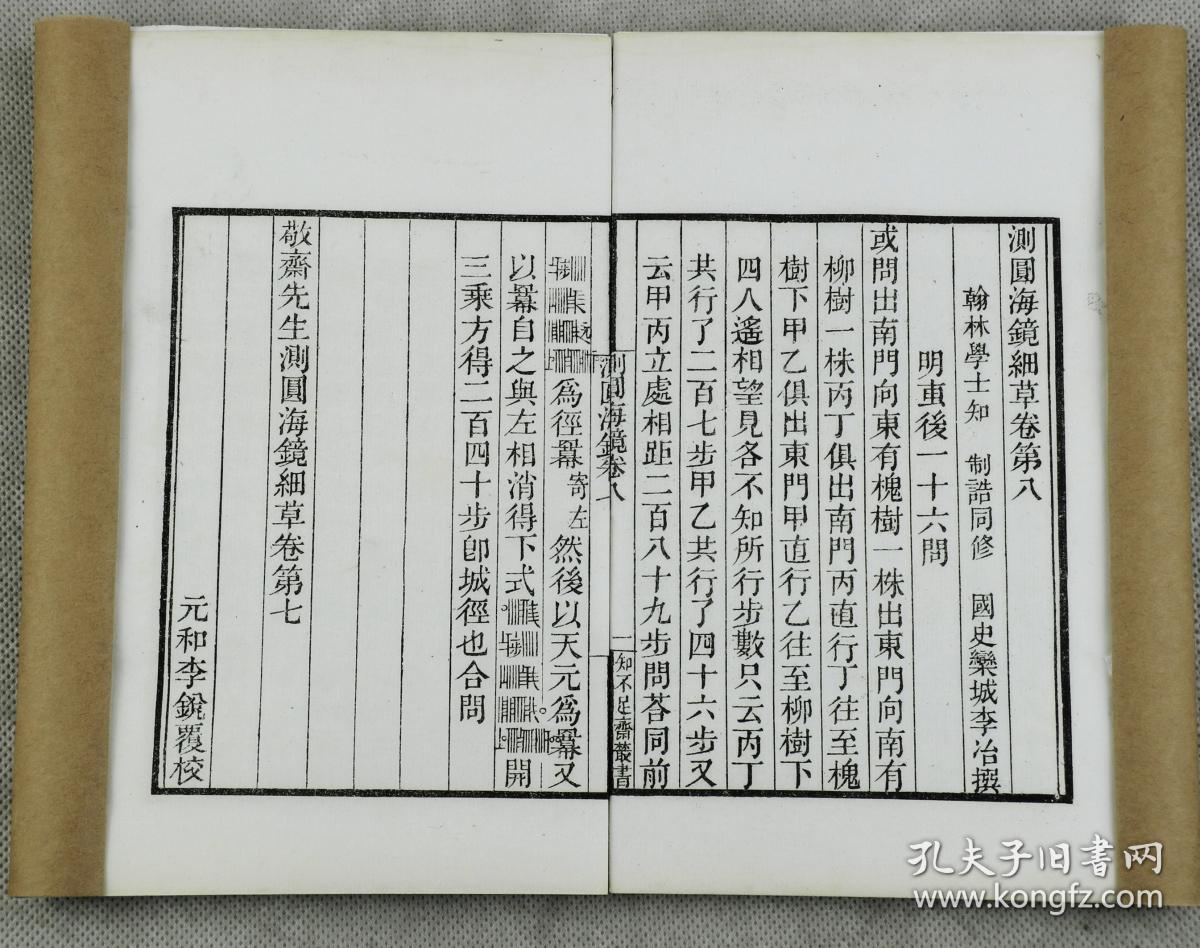 測圓海鏡細草卷第八
翰林學士知 制誥同修 國史欒城李冶撰
明叀後一十六問
或問出南門向東有槐樹一株出東門向南有
柳樹一株丙丁俱出南門丙直行丁往至槐
樹下甲乙俱出東門甲直行乙往至柳樹下
四人遙相望見各不知所行步數只云丙丁
共行了二百七步甲乙共行了四十六步又
云甲丙立處相距二百八十九步問荅同前
測圓海鏡卷八
一
知不足齋叢書
為徑冪寄左然後以天元為冪又
以冪自之與左相消得下式開
三乘方得二百四十步卽城徑也合問
敬齋先生測圓海鏡細草卷第七
元和李銳覆校
孔夫子旧书网
www.kongfz.com